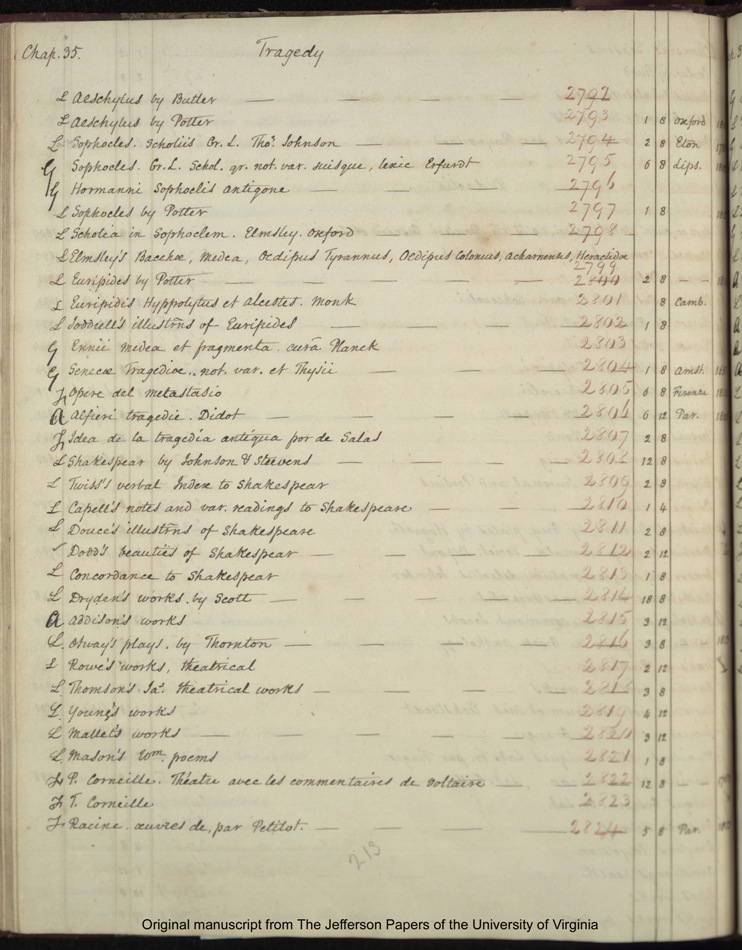 Chap. 35. Tragedy
L Aeschylus by Butler — — — — 2792
L Aeschylus by Potter 2793 1 8 oxford
L Sophocles. Scholiis Gr. L. Thos. Johnson — — — 2794 2 8 Eton
G Sophocles. Gr. L. Schol. gr. not. var. suisque, lexic Erfurdt 2795 6 8 Lips.
G Hormanni Sophoclis antigone — — — 2796
L Sophocles by Potter 2797 1 8
L Scholia in Sophoclem. Elmsley. oxford — — — 2798
L Elmsley's Bacchae, Medea, Oedipus Tyrannus, Oedipus Colonius, acharnenses, Heraclidae
2799
L Euripides by Potter — — — — 2800 2 8 — —
L Euripidis Hyppolytus et Alcestes. Monk 2801 8 Camb.
L Joddrell's illustrns of Euripides — — — 2802 1 8
G Ennii Medea et fragmenta. curâ Planck 2803
G Senecae Tragediae. not. var. et Thysii — — — 2804 1 8 amst.
It Opere del metastasio 2805 6 8 Firenze
A Alfieri tragedie. Didot — — — — 2806 6 12 Par.
Idea de la tragedia antiqua por de Salas 2807 2 8
L Shakespear by Johnson & Steevens — — — 2808 12 8
L Twiss's verbal Index to Shakespear 2809 2 8
L Capell's notes and var. readings to Shakespeare — — 2810 1 4
L Douce's illustrns of Shakespeare 2811 2 8
Dodd's beauties of Shakespear — — — 2812 2 12
L Concordance to Shakespear 2813 1 8
L Dryden's works. by Scott — — — — 2814 18 8
A addison's works 2815 3 12
L. Otway's plays. by Thornton — — — 2816 3 8
L Rowe's works, theatrical 2817 2 12
L Thomson's Jas. theatrical works — — — 2818 3 8
L Young's works 2819 4 12
L Mallet's works — — — — 2820 3 12
L Mason's Wm. poems 2821 1 8
Fr P. Corneille. Théatre avec les commentaires de Voltaire — — 2822 12 8 — —
Fr T. Corneille 2823
Fr Racine. œuvres de, par Petitot. — — — 2824 5 8 Par.
213
Original manuscript from The Jefferson Papers of the University of Virginia